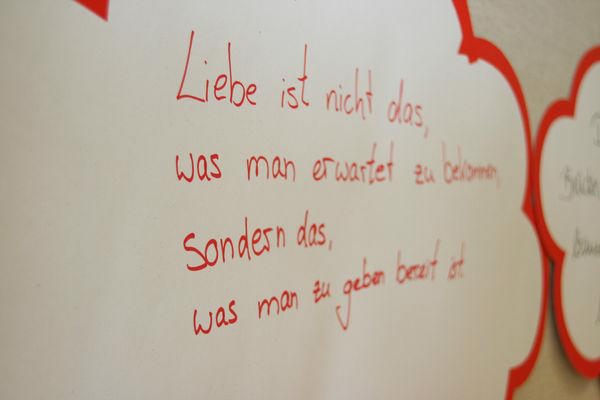 Liebe ist nicht das,
was man erwartet zu bekommen,
Sondern das,
was man zu geben bereit ist